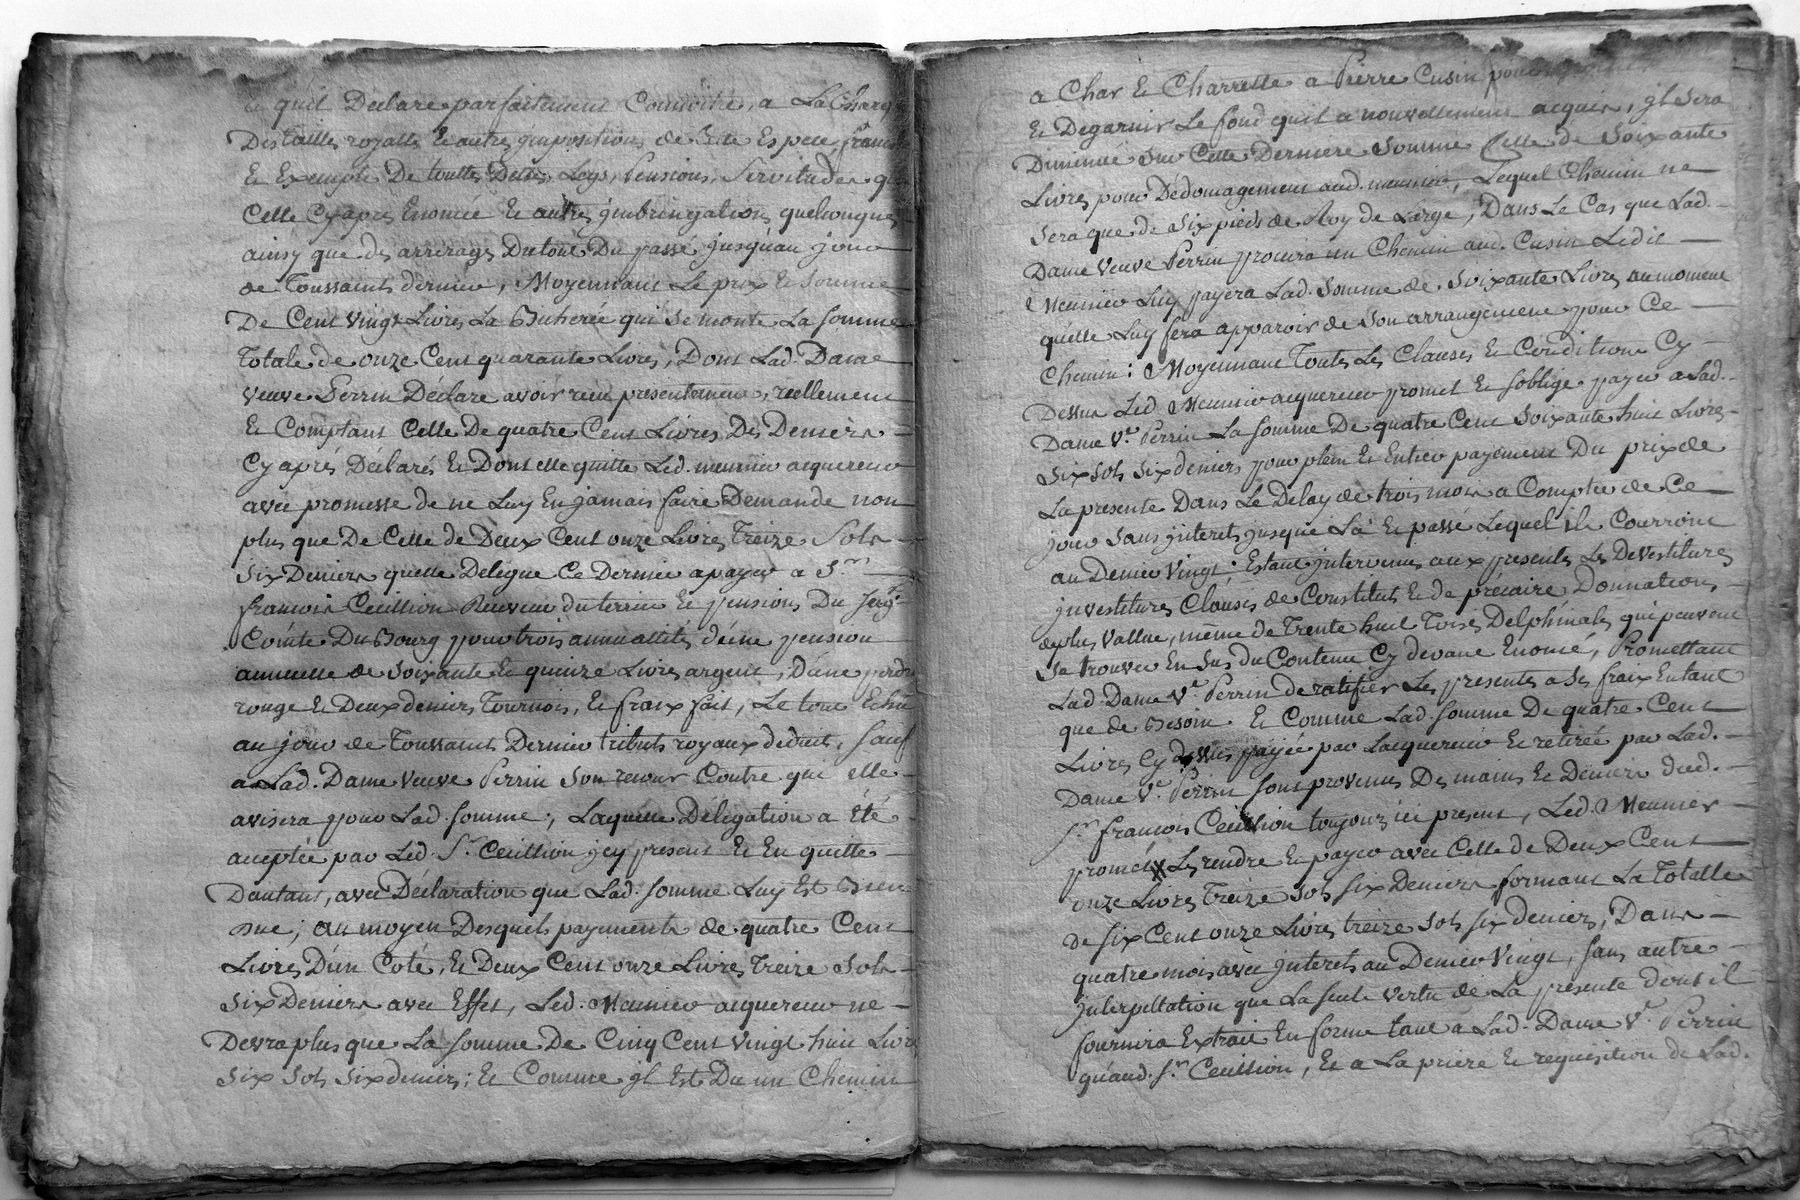 ce quil Declare parfaitement Connoitre, a La Charge
Des tailles royalles et autres jmpositions de tte Espece, franche
Et Exempte De touttes Dettes, Legs, Pensions, Servitudes que
Celle Cy apres Enoncée Et autres jmbringations quelconques
ainsy que des arrerages Du tout Du passé jusqu'au jour
de Toussaints dernier, Moyennant Le prix Et Somme
De Cent Vingt Livres La Bicherée qui se monte La Somme
Totale de onze Cent quarante Livres, Dont Lad. Dame
Veuve Perrin Déclare avoir reçu presentement, reellement
Et Comptant Celle De quatre Cent Livres Des Deniers
Cy aprés Déclarés Et Dont elle quitte Led. meunier acquereur
avec promesse de ne Luy En jamais faire Demande non
plus que De Celle de Deux Cent onze Livres Treize Sols
Six Deniers quelle Delegue Ce Dernier a payer a Sr.
françois Ceüillion Receveur du terrier Et pensions Du Seigr.
Comte Du Bourg pour trois annuallités d'une pension
annuelle de Soixante Et quinze Livres argent, D'une perdrix
rouge Et Deux deniers Tournois, Et fraix fait, Le tout Echu
au jour de Toussaint Dernier tributs royaux deduits, Sauf
a Lad. Dame Veuve Perrin Son recour Contre qui elle
avisera pour Lad. Somme; Laquelle Délegation a été
acceptée par Led. Sr. Ceüillion jcy present Et En quitte
Dautant, avec Déclaration que Lad. Somme Luy Est Bien
due; au moyen Desquels payements de quatre Cent
Livres D'un Coté, Et Deux Cent onze Livres Treize Sols
Six Deniers avec Effet, Led. Meunier acquereur ne
Devra plus que La Somme De Cinq Cent Vingt huit Livres
Six Sols Six deniers; Et Comme jl Est Du un Chemin
a Char Et Charrette a Pierre Cusin pour
Et Degarnir Le fond quil a nouvellement acquis, jl Sera
Diminué sur Cette Derniere Somme Celle de Soixante
Livres pour Dédomagement aud. meunier, Lequel Chemin ne
Sera que de Six pieds de Roy de Large; Dans Le Cas que Lad.
Dame Veuve Perrin procura un Chemin aud. Cusin Ledit
Meunier Luy payera Lad. Somme de Soixante Livres au moment
qu'elle Luy fera apparoir de Son arrangement pour Ce
Chemin: Moyennant Toutes Les Clauses Et Conditions Cy
Dessus Led. Meunier acquereur promet Et soblige payer a Lad.
Dame Ve. Perrin La Somme De quatre Cent Soixante huit Livres
Six Sols Six deniers pour plein Et Entier payement Du prix de
La presente Dans Le Delay de trois mois a Compter de Ce
jour Sans jnterets jusque La Et passé Lequel ils Courront
au Denier Vingt; Estant jntervenues aux presentes Les Devestitures
jnvestitures Clauses de Constitut Et de précaire Donnations
de plus Vallue, même de Trente huit Toises Delphinales qui peuvent
se trouver En Sus du Contenu Cy devant Enoncé, Promettant
Lad. Dame Ve. Perrin de ratifier Les presentes a Ses fraix Entant
que de Besoin. Et Comme Lad. Somme De quatre Cent
Livres Cy dessus payée par Lacquereur Et retirée par Lad.
Dame Ve. Perrin Sont provenues Des mains Et Deniers dud.
Sr. françois Ceüillion toujours ici present, Led. Meunier
promet Les rendre Et payer avec Celle de Deux Cent
onze Livres Treize Sols Six Deniers formant La Totalle
de six Cent onze Livres treize Sols six deniers, Dans
quatre mois avec jnterets au Denier Vingt, Sans autre
jnterpellation que La Seule Vertu de La presente dont il
fournira Extrait En forme tant a Lad. Dame Ve. Perrin
qu'aud. Sr. Ceüillion, Et a La priere Et requisition de Lad.